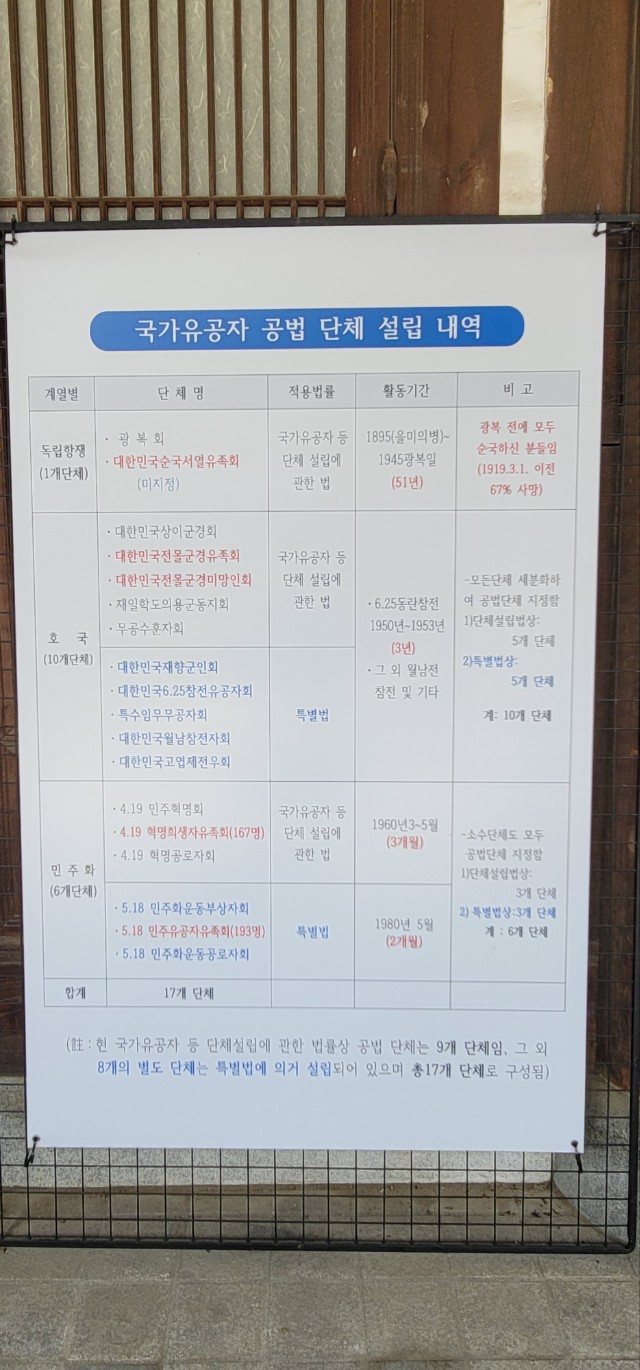 국가유공자 공법 단체 설립 내역
계열별 단체명 적용법률 활동기간 비고
독립항쟁
(1개단체)
· 광복회
· 대한민국순국서열유족회
(미지정)
국가유공자 등
단체 설립에
관한 법
1895(을미의병)~
1945광복일
(51년)
광복 전에 모두
순국하신 분들임
(1919.3.1. 이전
67% 사망)
호 국
(10개단체)
· 대한민국상이군경회
· 대한민국전몰군경유족회
· 대한민국전몰군경미망인회
· 재일학도의용군동지회
· 무공수훈자회
국가유공자 등
단체 설립에
관한 법
· 대한민국재향군인회
· 대한민국6.25참전유공자회
· 특수임무무공자회
· 대한민국월남참전자회
· 대한민국고엽제전우회
특별법
· 6.25동란참전
1950년~1953년
(3년)
· 그 외 월남전
참전 및 기타
-모든단체 세분화하
여 공법단체 지정함
1)단체설립법상:
5개 단체
2)특별법상:
5개 단체
계: 10개 단체
민주화
(6개단체)
· 4.19 민주혁명회
· 4.19 혁명희생자유족회(167명)
· 4.19 혁명공로자회
국가유공자 등
단체 설립에
관한 법
1960년3~5월
(3개월)
· 5.18 민주화운동부상자회
· 5.18 민주유공자유족회(193명)
· 5.18 민주화운동공로자회
특별법
1980년 5월
(2개월)
-소수단체도 모두
공법단체 지정함
1)단체설립법상:
3개 단체
2) 특별법상:3개 단체
계 : 6개 단체
합계 17개 단체
(註 : 현 국가유공자 등 단체설립에 관한 법률상 공법 단체는 9개 단체임, 그 외
8개의 별도 단체는 특별법에 의거 설립되어 있으며 총17개 단체로 구성됨)